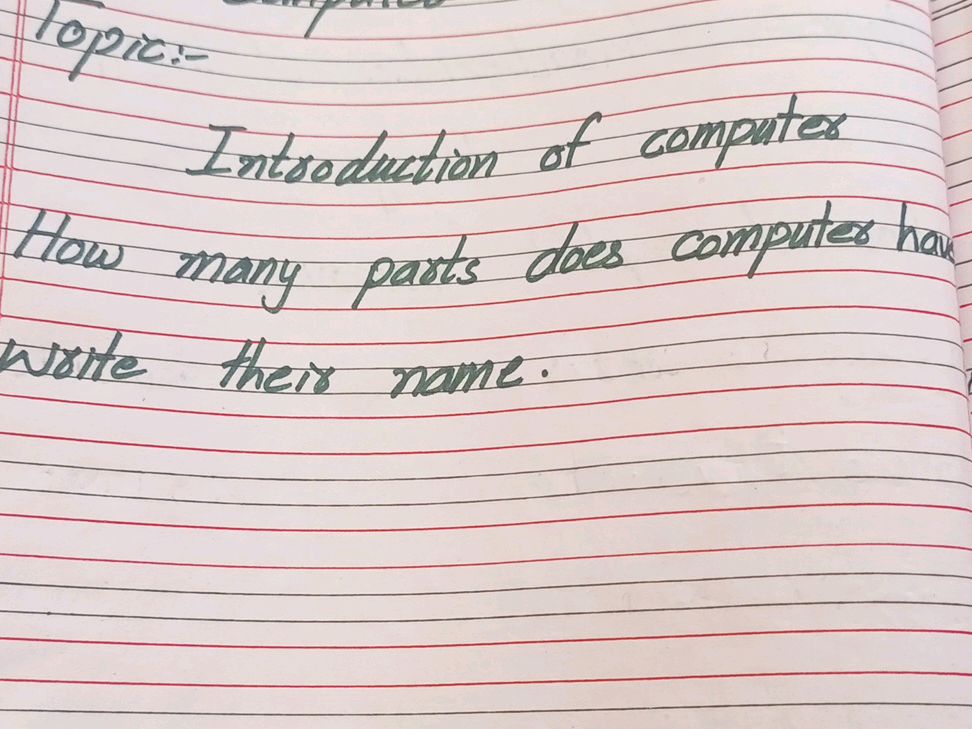 Computer
Topic:-
Introduction of computer
How many parts does computer have
Write their name.